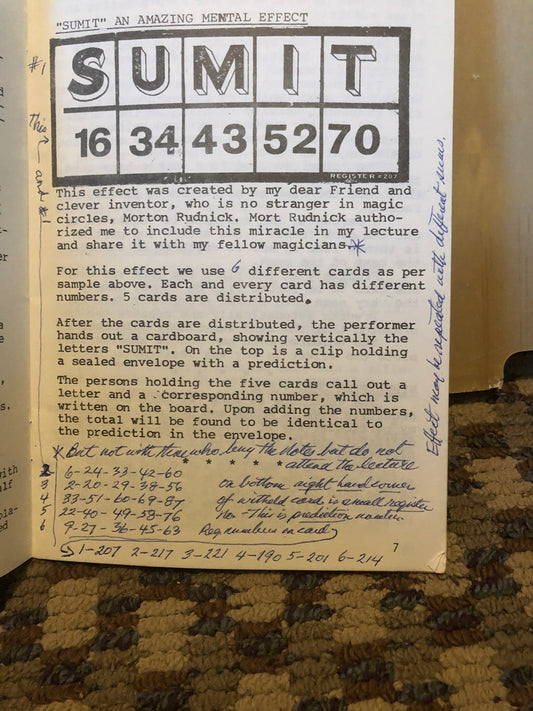 "SUMIT" AN AMAZING MENTAL EFFECT
#1
SUMIT
16 34 43 52 70
REGISTER #207
This
and #1
This effect was created by my dear Friend and
clever inventor, who is no stranger in magic
circles, Morton Rudnick. Mort Rudnick autho-
rized me to include this miracle in my lecture
and share it with my fellow magicians.*
For this effect we use 6 different cards as per
sample above. Each and every card has different
numbers. 5 cards are distributed.
After the cards are distributed, the performer
hands out a cardboard, showing vertically the
letters "SUMIT". On the top is a clip holding
a sealed envelope with a prediction.
The persons holding the five cards call out a
letter and a corresponding number, which is
written on the board. Upon adding the numbers,
the total will be found to be identical to
the prediction in the envelope.
* But not with those who buy the notes but do not
* * * * * attend the lecture
2 6-24-33-42-60
3 2-20-29-38-56 on bottom right hand corner
4 33-51-60-69-87 of witheld card is small register
5 22-40-49-58-76 No - This is prediction number
6 9-27-36-45-63 Reg numbers on card
1-207 2-217 3-221 4-190 5-201 6-214
7
Effect may be repeated with different sums.
er
s.
with
alf
pla-
ed